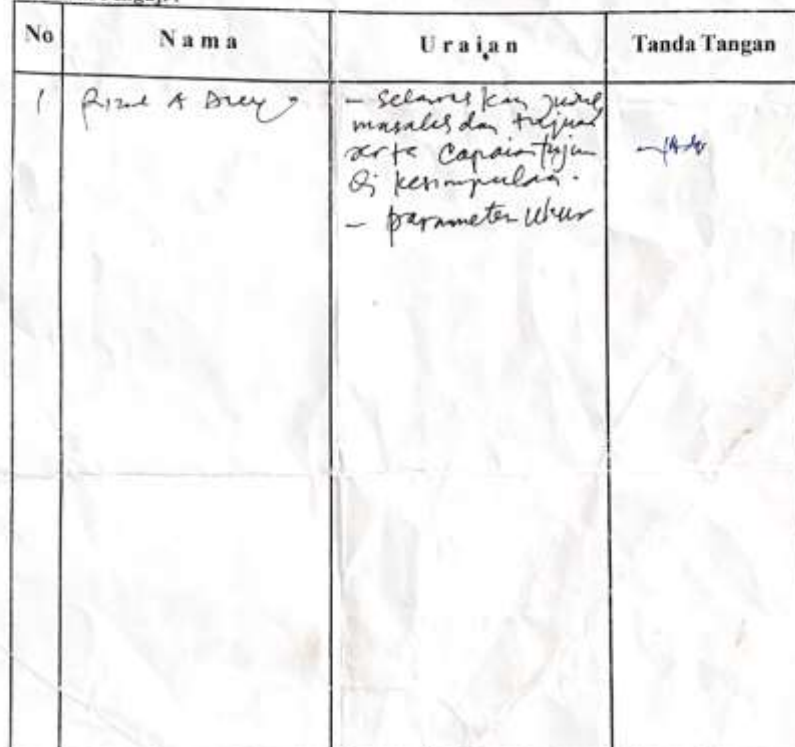 No Nama Uraian Tanda Tangan
1 A
- Selaraskan judul
masalah dan tujuan
serta Capaian tujuan
di kesimpulan.
- parameter Ukur